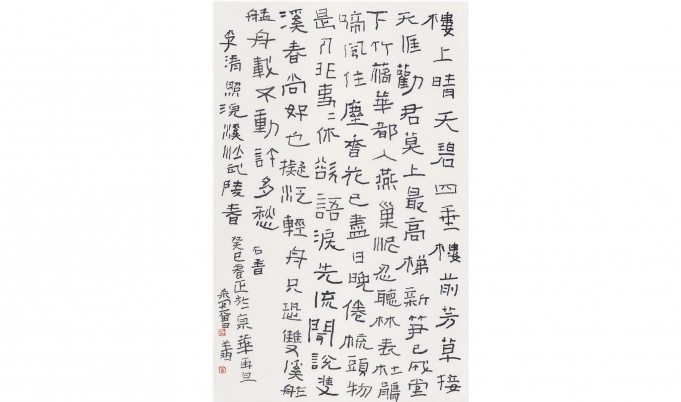 樓上晴天碧四垂樓前芳草接
天涯勸君莫上最高梯新笋已成堂
下竹落華都入燕巢泥忍聽林表杜鵑
啼風住塵香花已盡日晚倦梳頭物
是人非事〻休欲語淚先流聞說雙
溪春尚好也擬泛輕舟只恐雙溪舴
艋舟載不動許多愁
李清照浣溪沙武陵春
癸巳春正於京華